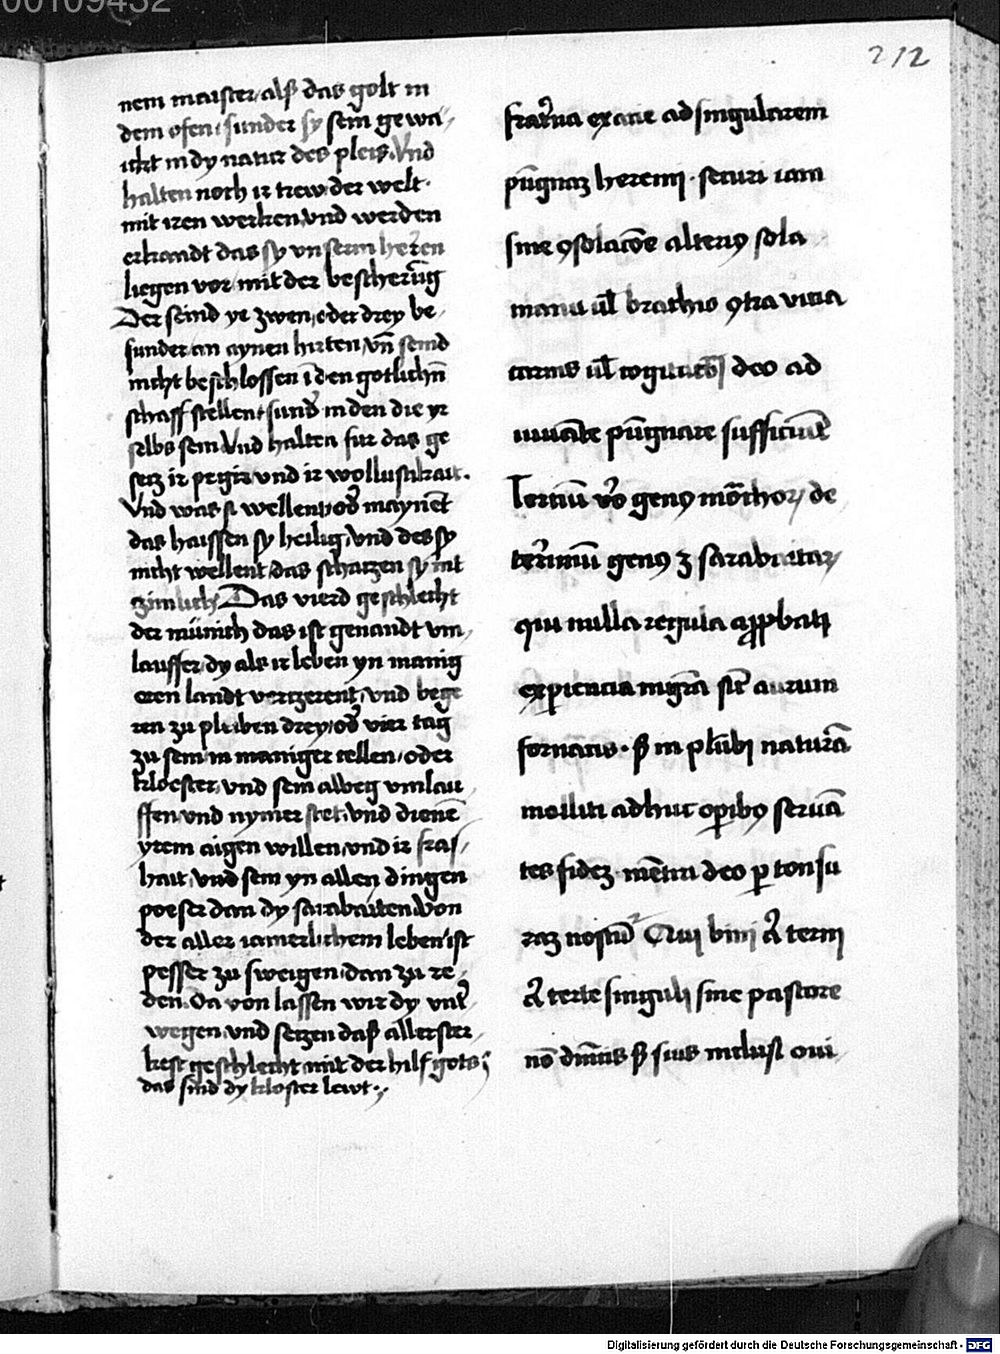 00109432
212
nem maister, alß das golt in
dem ofen, sunder sy sein gewa-
icht in dy natur des pleis. Vnd
halten noch ir trew der welt.
mit iren werken vnd werden
erkandt das sy vnserm herren
liegen vor mit der bescherūg
Der seind ye zwen, oder drey be-
sunder an aynen hirten, vn̄ seind
nicht beschlossen ī den gotlichn̄
schaff stellen, sund' in den die yr
selbs sein Vnd halten fur das ge
setz ir pegir vnd ir wollustikait.
Vnd was si wellent, od' maynēt
das haissen sy heilig, vnd des sy
nicht wellent, das schatzen sy nit
zimlich Das vierd geschlecht
der münich das ist genandt vm-
lauffer, dy als ir leben yn manig
eren landt vertzerent, vnd bege
ren zu pleiben drey, od' vier tag
zu sein in maniger cellen, oder
kloester, vnd sein albeg vmlau
ffen, vnd nymer stet, vnd dienē
yrem aigen willen, vnd ir fras-
hait, vnd sein yn allen dingen
poeser dan dy sarabaiten. Von
der aller iamerlichem leben ist
pesser zu sweigen, dan zu re-
den. Da von lassen wir dy vnt'
wegen, vnd setzen daß allerster-
kest geschlecht mit der hilf gots,
das sind dy kloster lewt.
frat'na ex acie ad singularem
pūgnaʒ heremi. securi iam
sine ꝯsolacōe alteriꝰ sola
manu ul̄ brachio ꝯtra vicia
carnis ul̄ cogitacōꝫ deo ad
iuuāte pūgnare sufficiūt
Terciū v'o genꝰ mōchoꝝ de
tet'rimū genꝰ ʒ sarabaitaꝝ
qui nulla regula aꝓꝓbati
exꝑiencia mīgrā sic̄ aurum
fornacis. ß in plūbi naturā
molliti adhuc oꝑibꝰ seruā
tes fidēʒ. mētiri deo ꝑ tonsu
raʒ noscūt' Qui bini āt terni
āt certe singuli sine pastore
nō dn̄icis ß suis inclusi oui-
Digitalisierung gefördert durch die Deutsche Forschungsgemeinschaft - DFG